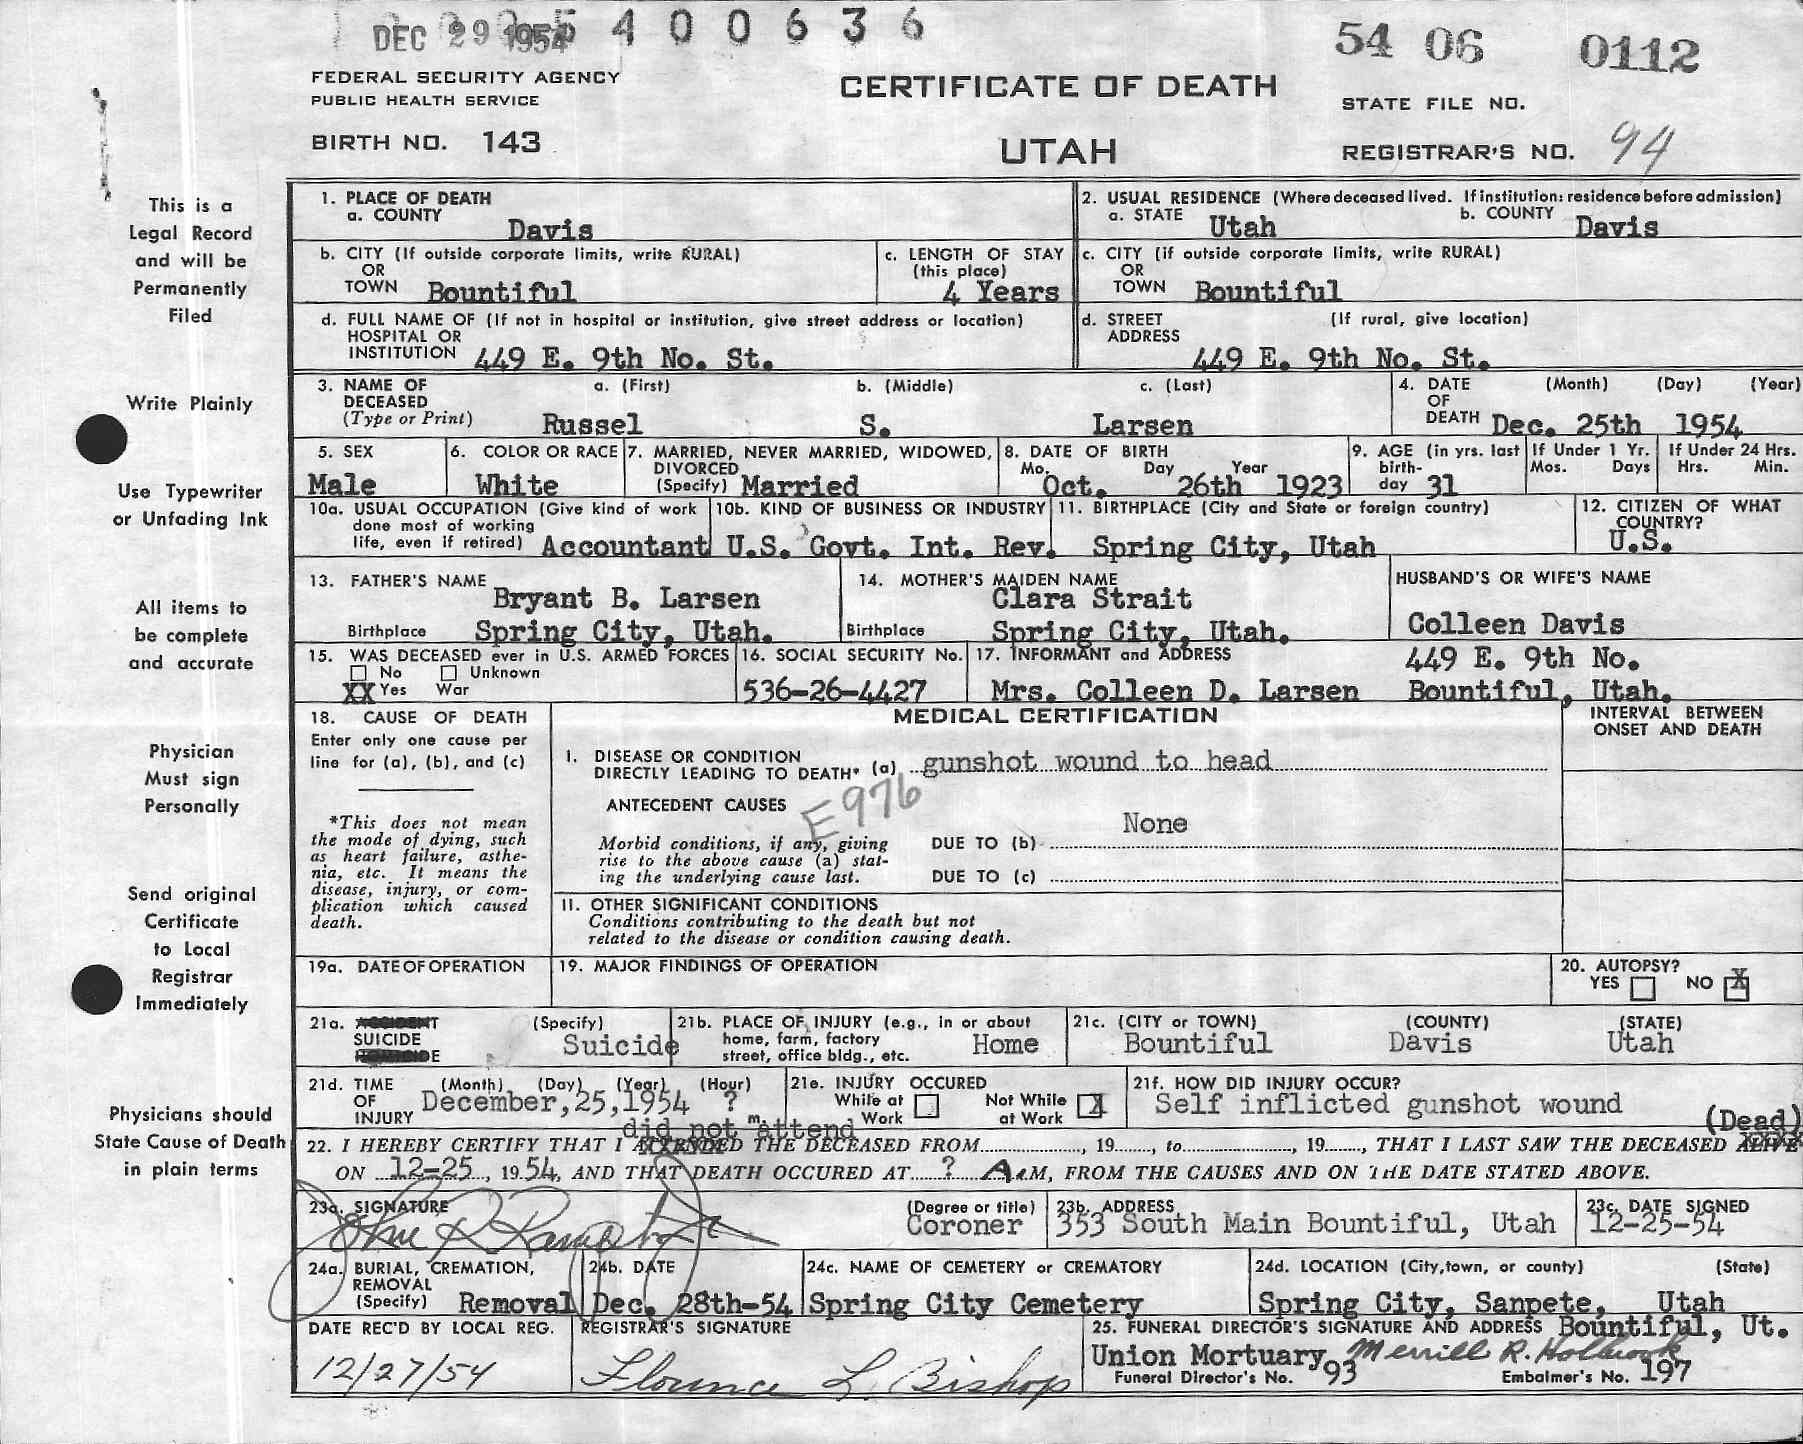 DEC 29 1954 5 4 0 0 6 3 6
54 06 0112
FEDERAL SECURITY AGENCY
PUBLIC HEALTH SERVICE
BIRTH NO. 143
CERTIFICATE OF DEATH
UTAH
STATE FILE NO.
REGISTRAR'S NO. 94
This is a
Legal Record
and will be
Permanently
Filed
Write Plainly
Use Typewriter
or Unfading Ink
All items to
be complete
and accurate
Physician
Must sign
Personally
Send original
Certificate
to Local
Registrar
Immediately
Physicians should
State Cause of Death
in plain terms
1. PLACE OF DEATH
a. COUNTY Davis
2. USUAL RESIDENCE (Where deceased lived. If institution: residence before admission)
a. STATE Utah b. COUNTY Davis
b. CITY (If outside corporate limits, write RURAL)
OR
TOWN Bountiful
c. LENGTH OF STAY
(this place)
4 Years
c. CITY (if outside corporate limits, write RURAL)
OR
TOWN Bountiful
d. FULL NAME OF (If not in hospital or institution, give street address or location)
HOSPITAL OR
INSTITUTION 449 E. 9th No. St.
d. STREET (If rural, give location)
ADDRESS
449 E. 9th No. St.
3. NAME OF a. (First) b. (Middle) c. (Last)
DECEASED
(Type or Print) Russel S. Larsen
4. DATE (Month) (Day) (Year)
OF
DEATH Dec. 25th 1954
5. SEX
Male
6. COLOR OR RACE
White
7. MARRIED, NEVER MARRIED, WIDOWED,
DIVORCED
(Specify) Married
8. DATE OF BIRTH
Mo. Day Year
Oct. 26th 1923
9. AGE (in yrs. last
birth-
day 31
If Under 1 Yr.
Mos. Days
If Under 24 Hrs.
Hrs. Min.
10a. USUAL OCCUPATION (Give kind of work
done most of working
life, even if retired) Accountant
10b. KIND OF BUSINESS OR INDUSTRY
U.S. Govt. Int. Rev.
11. BIRTHPLACE (City and State or foreign country)
Spring City, Utah
12. CITIZEN OF WHAT
COUNTRY?
U.S.
13. FATHER'S NAME
Bryant B. Larsen
Birthplace Spring City, Utah.
14. MOTHER'S MAIDEN NAME
Clara Strait
Birthplace Spring City, Utah.
HUSBAND'S OR WIFE'S NAME
Colleen Davis
15. WAS DECEASED ever in U.S. ARMED FORCES
No Unknown
XX Yes War
16. SOCIAL SECURITY No.
536-26-4427
17. INFORMANT and ADDRESS
449 E. 9th No.
Mrs. Colleen D. Larsen Bountiful, Utah.
18. CAUSE OF DEATH
Enter only one cause per
line for (a), (b), and (c)
*This does not mean
the mode of dying, such
as heart failure, asthe-
nia, etc. It means the
disease, injury, or com-
plication which caused
death.
MEDICAL CERTIFICATION
INTERVAL BETWEEN
ONSET AND DEATH
I. DISEASE OR CONDITION
DIRECTLY LEADING TO DEATH* (a) gunshot wound to head
ANTECEDENT CAUSES
E976
Morbid conditions, if any, giving
rise to the above cause (a) stat-
ing the underlying cause last.
None
DUE TO (b)
DUE TO (c)
11. OTHER SIGNIFICANT CONDITIONS
Conditions contributing to the death but not
related to the disease or condition causing death.
19a. DATE OF OPERATION
19. MAJOR FINDINGS OF OPERATION
20. AUTOPSY?
YES NO X
21a. ACCIDENT (Specify)
SUICIDE Suicide
HOMICIDE
21b. PLACE OF INJURY (e.g., in or about
home, farm, factory
street, office bldg., etc. Home
21c. (CITY or TOWN) (COUNTY) (STATE)
Bountiful Davis Utah
21d. TIME (Month) (Day) (Year) (Hour)
OF
INJURY December,25,1954 ? m.
21e. INJURY OCCURED
While at Work
Not While at Work X
21f. HOW DID INJURY OCCUR?
Self inflicted gunshot wound
did not attend (Dead)
22. I HEREBY CERTIFY THAT I ATTENDED THE DECEASED FROM , 19 , to , 19 , THAT I LAST SAW THE DECEASED ALIVE
ON 12-25, 1954, AND THAT DEATH OCCURED AT ? A.M, FROM THE CAUSES AND ON THE DATE STATED ABOVE.
23a. SIGNATURE
(Degree or title)
Coroner
23b. ADDRESS
353 South Main Bountiful, Utah
23c. DATE SIGNED
12-25-54
24a. BURIAL, CREMATION,
REMOVAL
(Specify) Removal
24b. DATE
Dec. 28th-54
24c. NAME OF CEMETERY or CREMATORY
Spring City Cemetery
24d. LOCATION (City, town, or county) (State)
Spring City, Sanpete, Utah
DATE REC'D BY LOCAL REG.
12/27/54
REGISTRAR'S SIGNATURE
Florence L. Bishop
25. FUNERAL DIRECTOR'S SIGNATURE AND ADDRESS Bountiful, Ut.
Union Mortuary Merrill R. Holbrook
Funeral Director's No. 93 Embalmer's No. 197